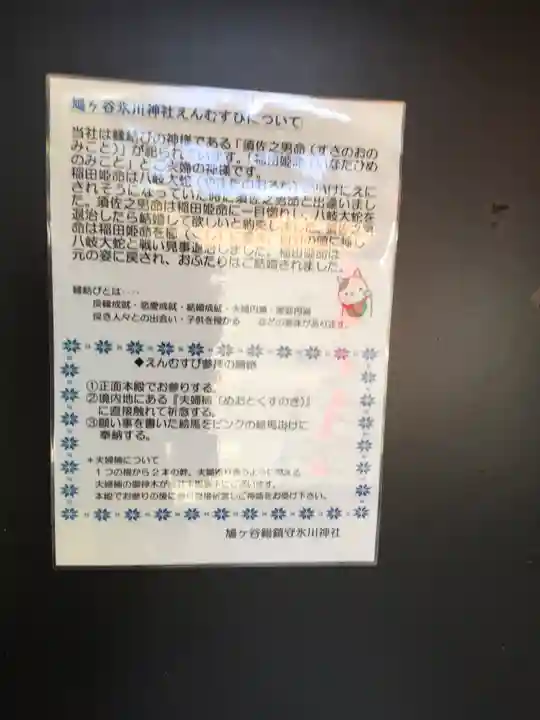 鳩ヶ谷氷川神社えんむすびについて
当社は縁結びの神様である「須佐之男命(すさのおの
みこと)」が祀られています。「稲田姫命(いなだひめ
のみこと)」とご夫婦の神様です。
稲田姫命は八岐大蛇(やまたのおろち)にいけにえに
されそうになっていた時に須佐之男命と出逢いまし
た。須佐之男命は稲田姫命に一目惚れし、八岐大蛇を
退治したら結婚して欲しいと約束しました。須佐之男
命は稲田姫命を櫛(くし)に変え、自分の髪に挿し
八岐大蛇と戦い見事退治しました。稲田姫命は
元の姿に戻され、おふたりはご結婚されました。
縁結びとは・・・
良縁成就・恋愛成就・結婚成就・夫婦円満・家庭円満
良き人々との出会い・子供を授かる などの意味があります。
◆えんむすび参拝の
①正面本殿でお参りする。
②境内地にある『夫婦楠(めおとくすのき)』
に直接触れて祈念する。
③願い事を書いた絵馬をピンクの絵馬掛けに
奉納する。
*夫婦楠について
1つの根から2本の幹、夫婦寄り添うように
夫婦楠の御神木が
本殿でお参りの後に ご神徳をお受け下さい。
鳩ヶ谷総鎮守氷川神社